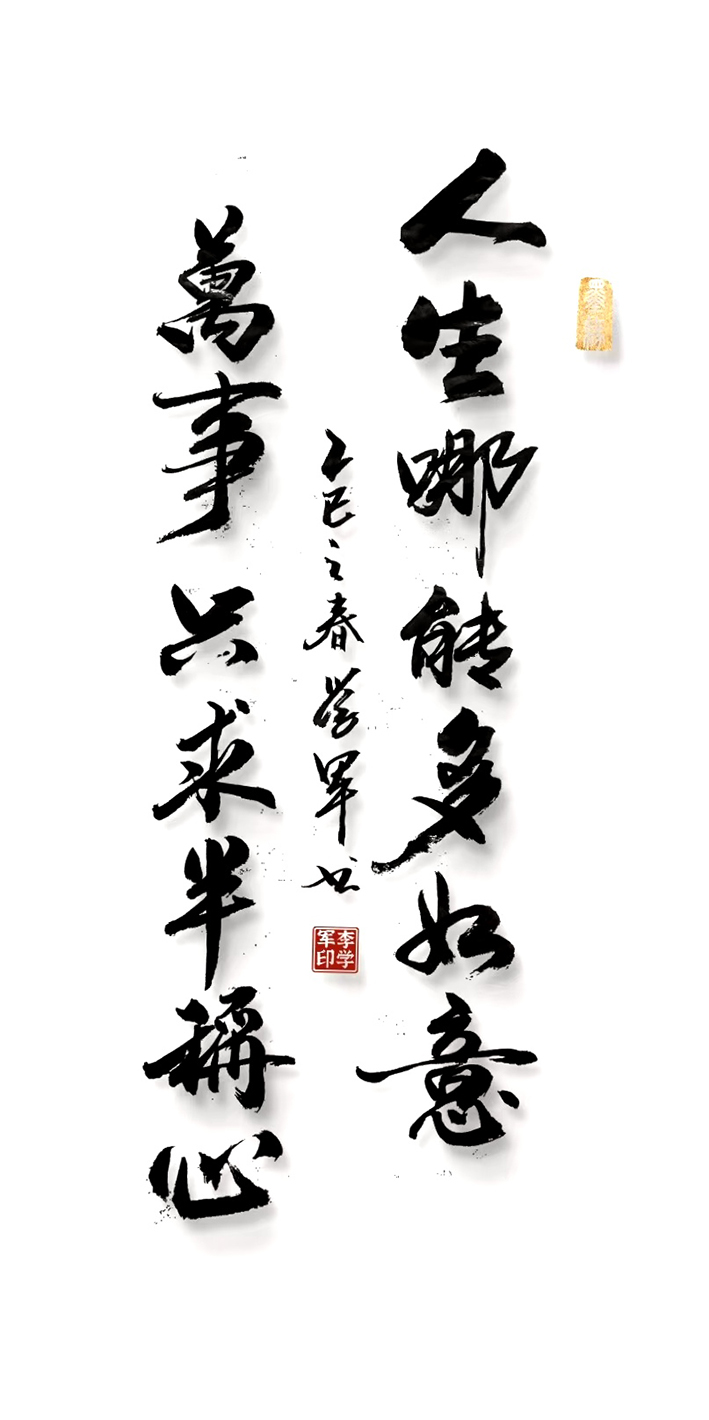 人生哪能多如意
萬事只求半稱心
乙巳之春学军书
李学军印